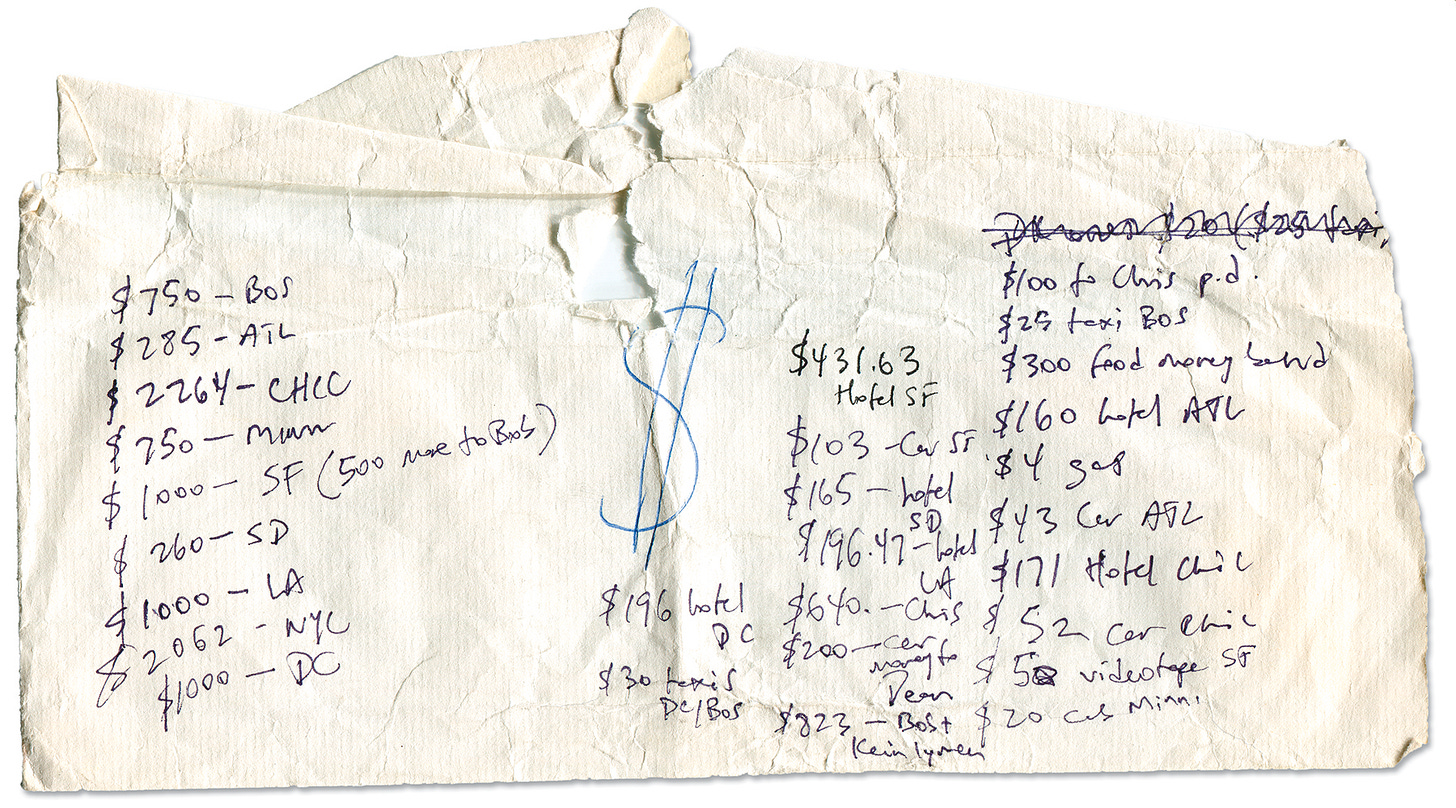 $750 – BOS
$285 – ATL
$2264 – CHCC
$750 – Minn
$1000 – SF (500 more to BOS)
$260 – SD
$1000 – LA
$2062 – NYC
$1000 – DC
$
$196 hotel
DC
$30 taxis
DC/BOS
$431.63
Hotel SF
$103 – Car SF
$165 – hotel
SD
$196.47 – hotel
LA
$640. – Chris
$200 – car
money to
Dean
$823 – BOS +
$20 ($25 taxi
$100 to Chris p.d.
$25 taxi BOS
$300 food money band
$160 hotel ATL
$4 gas
$43 Car ATL
$171 Hotel Chic
$52 Car Chic
$5 videotape SF
$20 cab Minn.